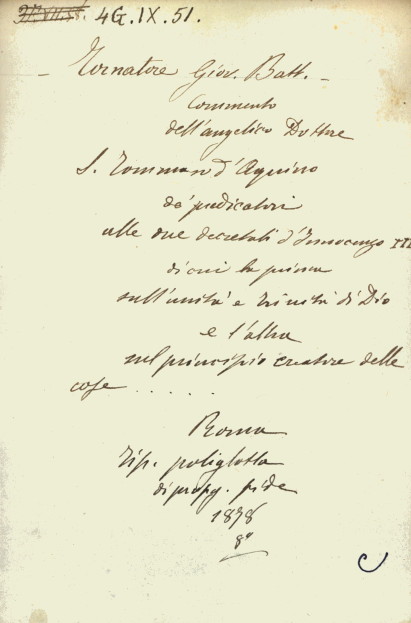 4G.IX.51.
Tornatore Giov. Batt. -
Commento
dell'angelico Dottore
S. Tommaso d'Aquino
de' predicatori
alle due decretali d'Innocenzo III
di cui la prima
sull'unità e trinità di Dio
e l'altra
sul principio creatore delle
cose . . . . .
Roma
Tip. poliglotta
di propg. fide
1878
8º